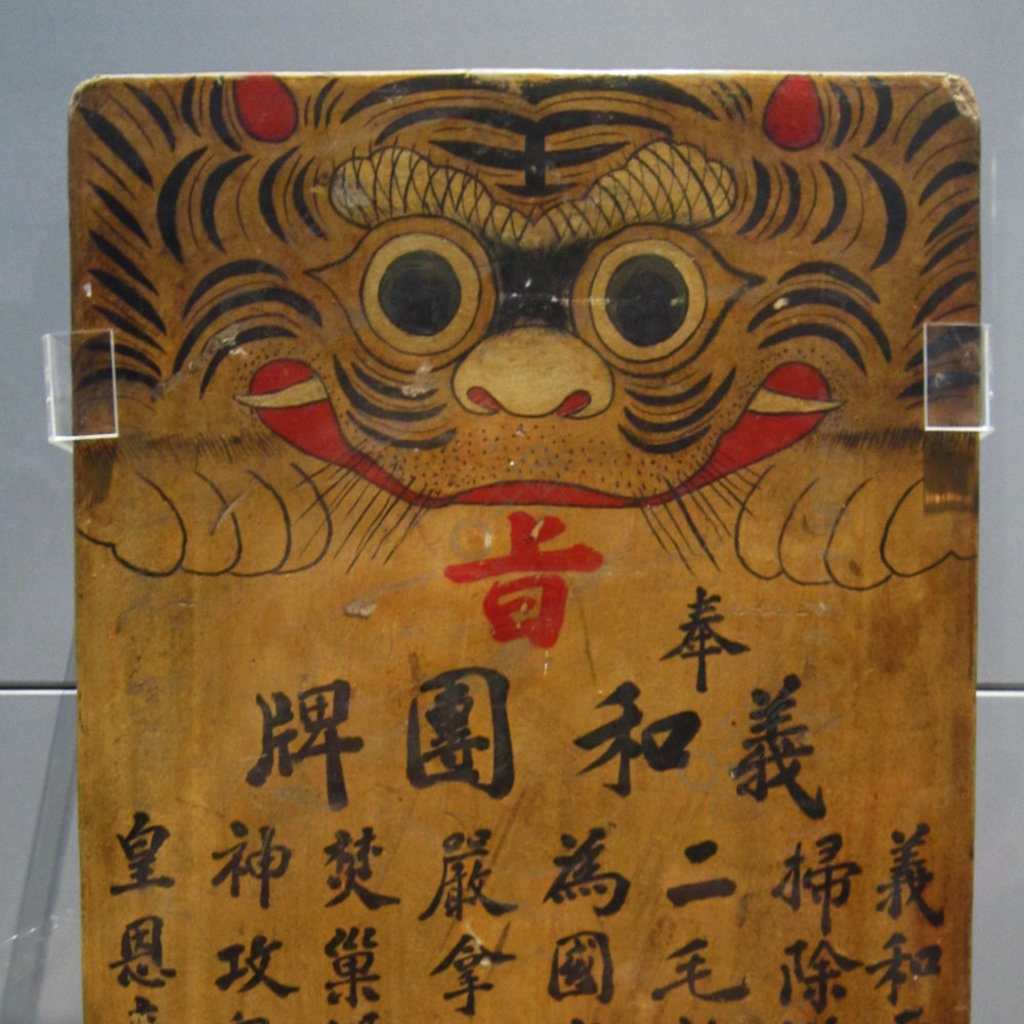 奉
旨
義和團牌
義和
掃除
二毛
為國
嚴拿
焚巢
神攻
皇恩